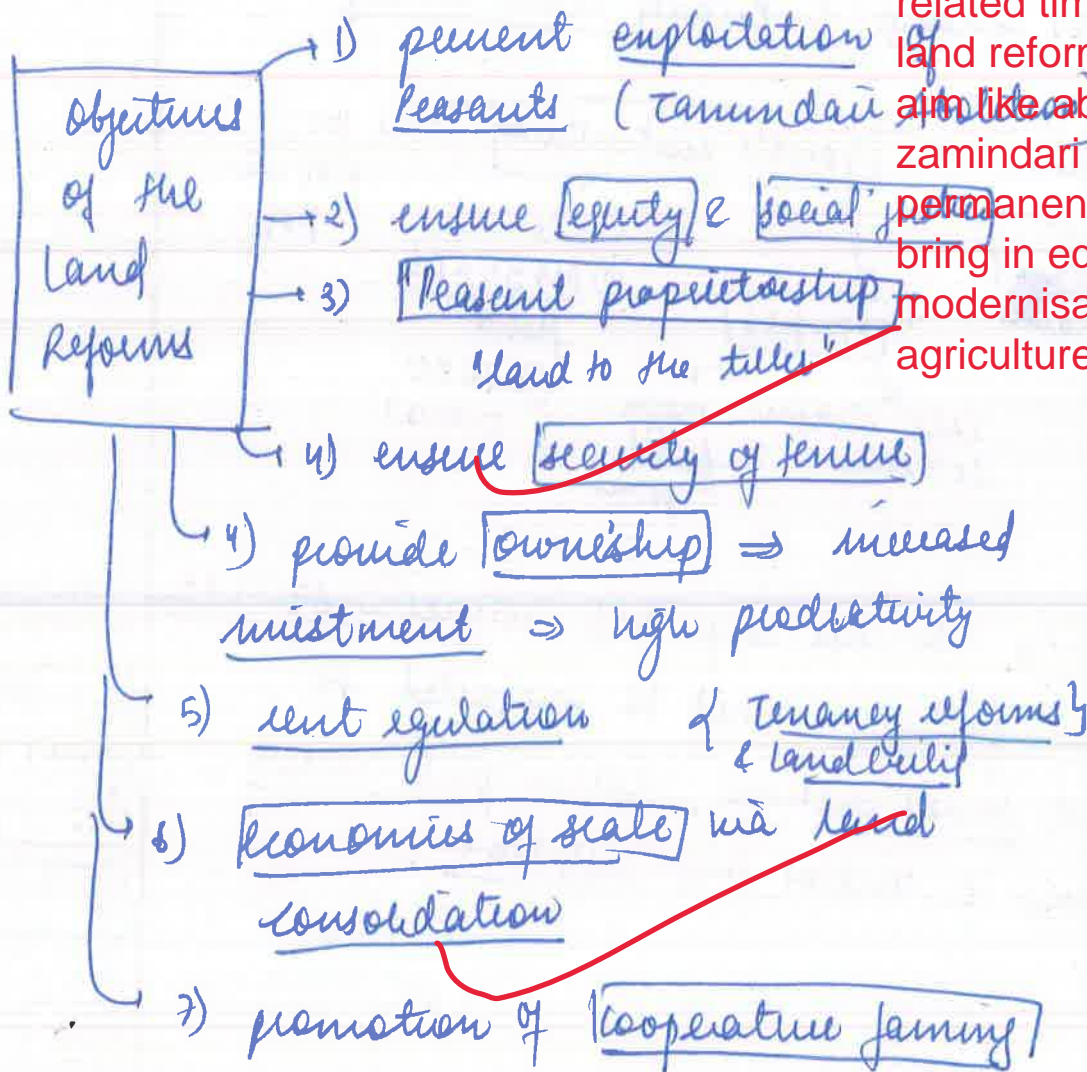 objectives
of the
Land
Reforms
1) prevent exploitation of
Peasants (Zamindari Abolition
2) ensure equity & social justice
3) "Peasant proprietorship -
"land to the tiller"
4) ensure security of tenure
4) provide ownership ⇒ increased
investment ⇒ high productivity
5) rent regulation { Tenancy reforms }
& land ceiling
6) economies of scale via land
consolidation
7) promotion of cooperative farming
related tim
land reform
aim like ab
zamindari
permanen
bring in eq
modernisa
agriculture